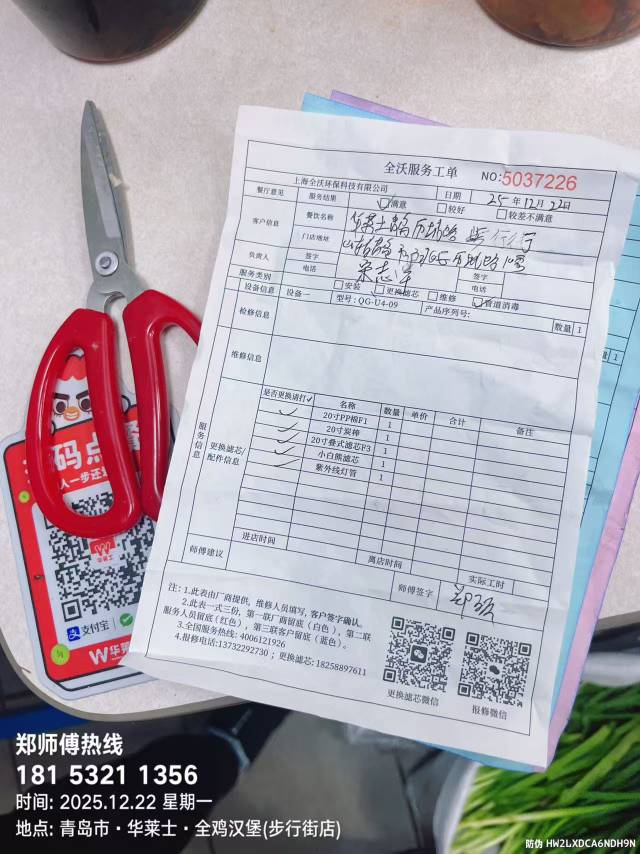 全沃服务工单
NO:5037226
上海全沃环保科技有限公司
日期
25年12月22日
餐厅意见
服务结果
满意
较好
较签不满意
客户信息
餐饮名称
门店地址
负责人
签字
电话
签字
电话
服务类别
安装
更换滤芯
维修
管道消毒
设备信息
设备一
型号: QG-U4-09
产品序列号:
数量
1
检修信息
维修信息
服务信息
更换滤芯/配件信息
是否更换请打✓
名称
数量
单价
合计
备注
✓ 20寸PP棉F1 1
✓ 20寸炭棒 1
✓ 20寸叠式滤芯F3 1
✓ 小白熊滤芯 1
✓ 紫外线灯管 1
进店时间
离店时间
实际工时
师傅建议
师傅签字
注: 1.此表由厂商提供, 维修人员填写, 客户签字确认。
2.此表一式三份, 第一联厂商留底(白色), 第二联
服务人员留底(红色), 第三联客户留底(蓝色)。
3.全国服务热线: 4006121926
4.报修电话:13732292730 ; 更换滤芯: 18258897611
更换滤芯微信
报修微信
码点餐
人一步还
华莱士
支付宝
郑师傅热线
181 5321 1356
时间: 2025.12.22 星期一
地点: 青岛市·华莱士·全鸡汉堡(步行街店)
防伪 HW2LXDCA6NDH9N